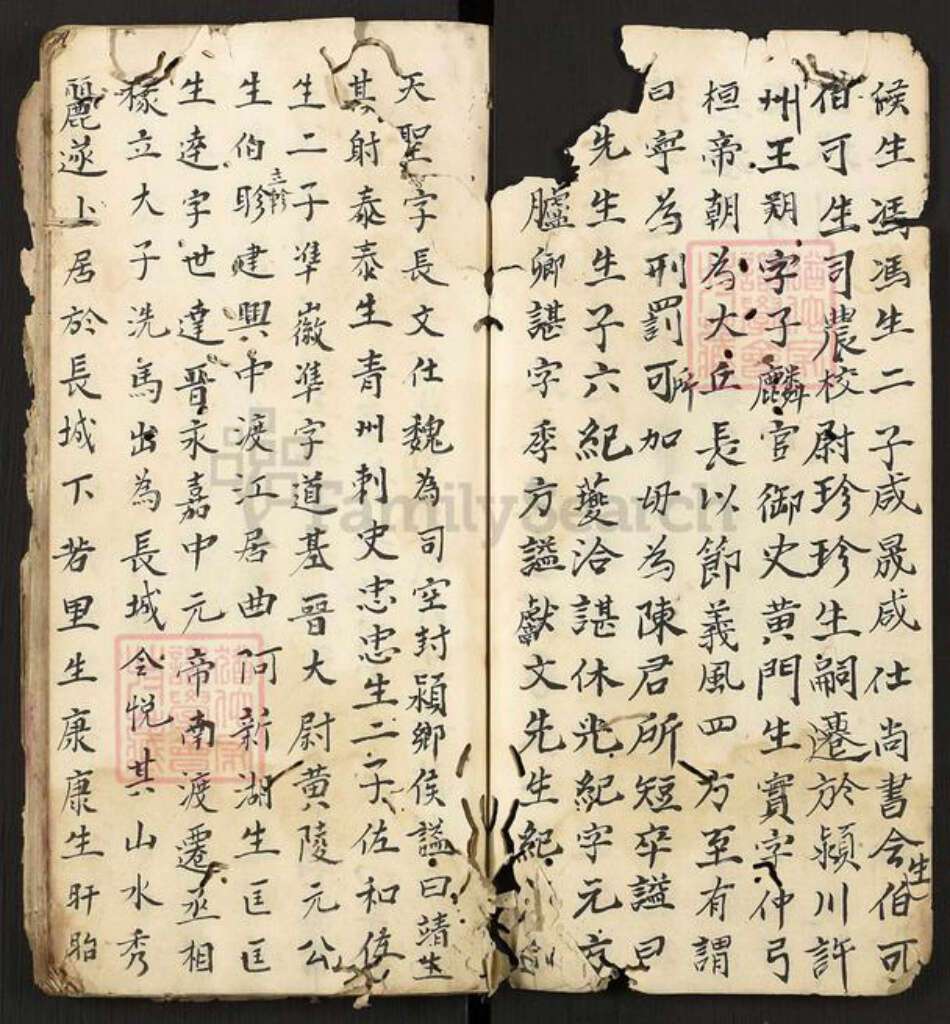 候生馮馮生二子咸晟咸仕尚書令生伯可
伯可生司農校尉珍珍生嗣遷於潁川許
州王朔字子麟官御史黃門生實字仲弓
桓帝朝為大丘長以節義風四方至有謂
曰寧為刑罰可所加毋為陳君所短卒謚曰
先生生子六紀夔洽諶休光紀字元方
臚卿諶字季方謚獻文先生紀
天聖字長文仕魏為司空封潁鄉侯謚曰靖生
其射泰泰生青州刺史忠忠生二子佐和佐
生二子準徽準字道基晉大尉黃陵元公
生伯眕建興中渡江居曲阿新湖生匡匡
生達字世達晉永嘉中元帝南渡遷丞相
掾立大子洗馬出為長城令悅其山水秀
麗遂卜居於長城下若里生康康生盱眙
FamilySearch